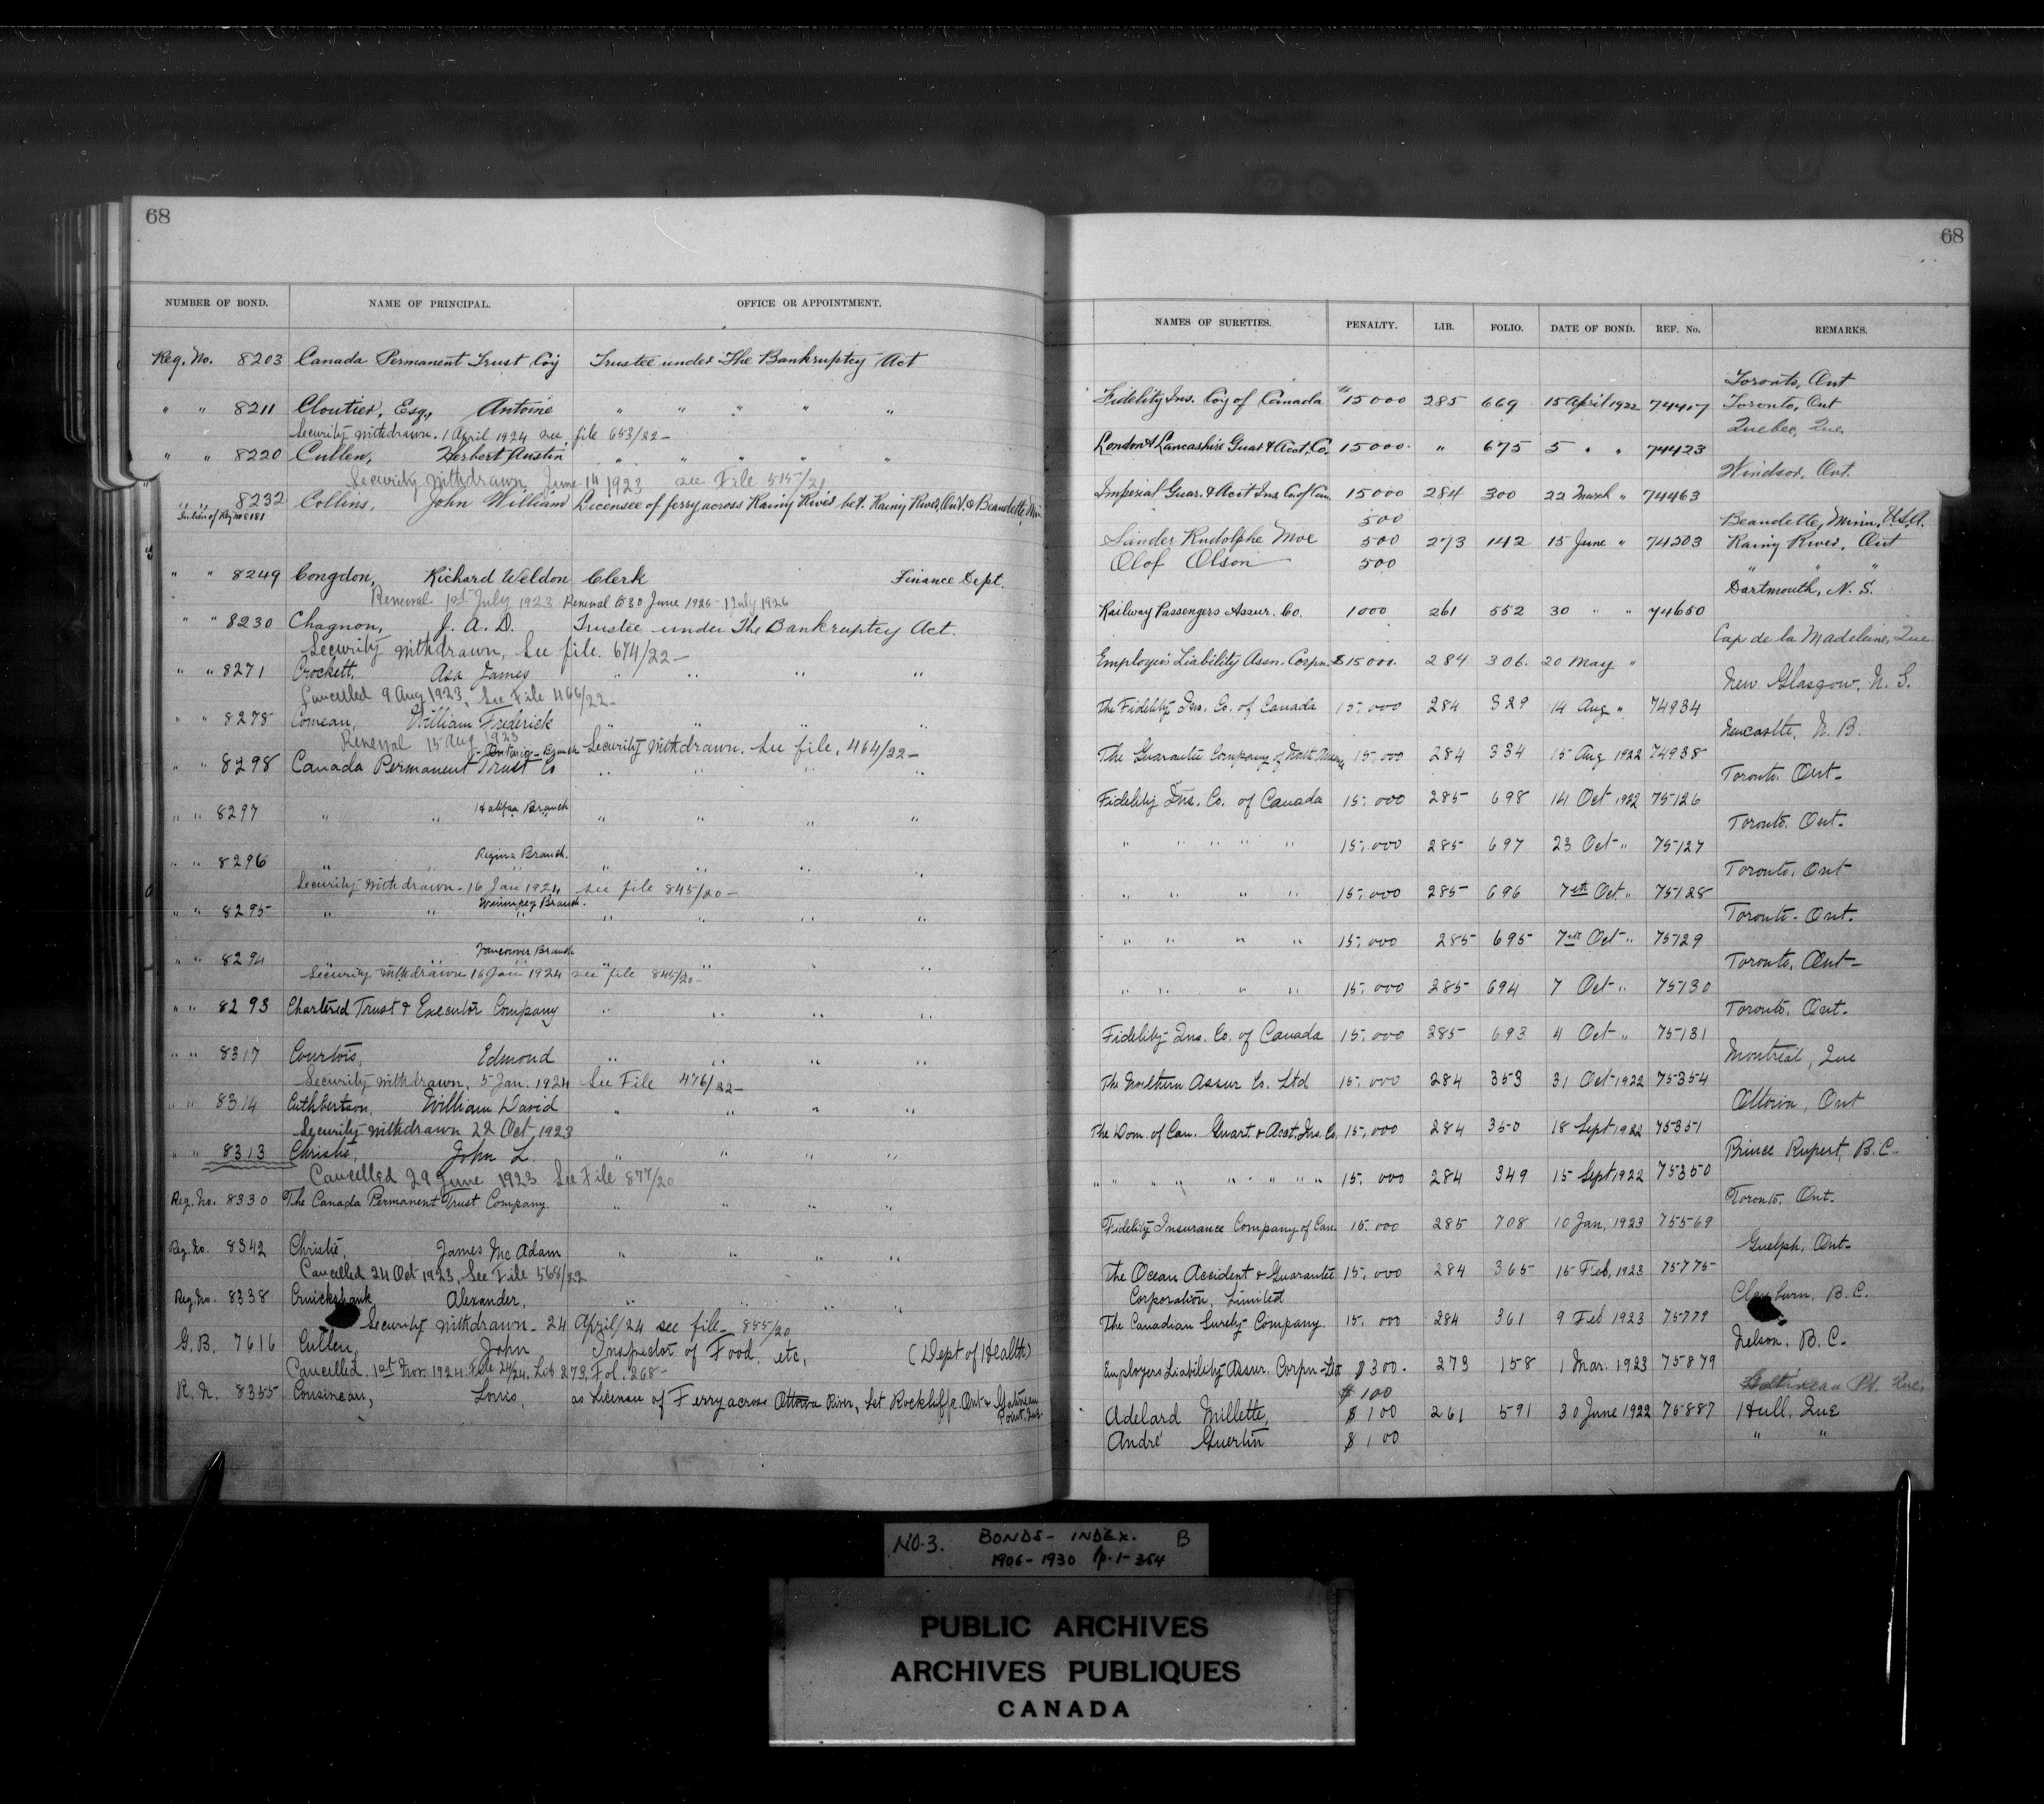 68
NUMBER OF BOND. NAME OF PRINCIPAL. OFFICE OR APPOINTMENT.
Reg. No. 8203 Canada Permanent Trust Coy Trustee under The Bankruptcy Act
" " 8211 Cloutier, Esq., Antoine " " " " "
Security withdrawn. 1 April 1924 see file 653/22-
" " 8220 Cullen, Herbert Austin " " " " "
Security withdrawn June 1923 see File 515/21
" " 8232 Collins, John William Licensee of ferry across Rainy River bet. Rainy River, Ont. & Beaudette, Min.
In lieu of Reg No 8181
" " 8249 Congdon, Richard Weldon Clerk Finance Dept.
Renewal 1st July 1923 Renewal to 30 June 1925 - 1 July 1926
" " 8230 Chagnon, J. A. D. Trustee under The Bankruptcy Act.
Security withdrawn, See file. 674/22-
" " 8271 Crockett, Asa James " " " "
Cancelled 9 Aug 1923, See File 466/22-
" " 8278 Comeau, William Frederick " " " "
Renewal 15 Aug 1923 Security withdrawn. See file, 464/22-
Ontario Branch
" " 8298 Canada Permanent Trust Co " " " "
Halifax Branch
" " 8297 " " " " " "
Regina Branch.
" " 8296 " " " " " "
Security withdrawn - 16 Jan 1924 see file 845/20-
Winnipeg Branch.
" " 8295 " " " " " "
Vancouver Branch
" " 8294 " " " " " "
Security withdrawn 16 Jan 1924 see file 845/20-
" " 8293 Chartered Trust & Executor Company " " " "
" " 8317 Courtois, Edmond " " " "
Security withdrawn, 5 Jan. 1924 See File 476/22-
" " 8314 Cuthbertson, William David " " " "
Security withdrawn 22 Oct 1923
" " 8313 Christie, John L. " " " "
Cancelled 29 June 1923 See File 877/20
Reg. No. 8330 The Canada Permanent Trust Company " " " "
Reg. No. 8342 Christie, James McAdam " " " "
Cancelled 24 Oct 1923, See File 568/22
Reg. No. 8338 Cruickshank Alexander, " " " "
Security withdrawn - 24 April/24 see file - 855/20
G. B. 7616 Cullen, John Inspector of Food, etc, (Dept of Health)
Cancelled. 1st Nov. 1924. File 24/24. Lib 273. Fol. 268-
R. N. 8355 Cousineau, Louis, as Licensee of Ferry across Ottawa River, bet Rockliffe Ont & Gatineau Point, Que.
68
NAMES OF SURETIES. PENALTY. LIB. FOLIO. DATE OF BOND. REF. No. REMARKS.
Toronto, Ont
Fidelity Ins. Coy of Canada $15000 285 669 15 April 1922 74417 Toronto, Ont
Quebec, Que.
London & Lancashire Guar & Acct. Co. 15000. " 675 5 " " 74423
Windsor, Ont.
Imperial Guar. & Acct Ins Co of Can. 15000 284 300 22 March " 74463
500 Beaudette, Minn, U.S.A.
Sander Rudolphe Moe 500 273 142 15 June " 74203 Rainy River, Ont
Olof Olson 500 " "
Dartmouth, N. S.
Railway Passengers Assur. Co. 1000 261 552 30 " " 74650
Cap de la Madeleine, Que.
Employers Liability Assn. Corpn. $15000. 284 306. 20 May "
New Glasgow, N. S.
The Fidelity Ins. Co. of Canada 15,000 284 329 14 Aug " 74934
Newcastle, N. B.
The Guarantee Company of North America 15,000 284 334 15 Aug 1922 74938
Toronto, Ont.
Fidelity Ins. Co. of Canada 15,000 285 698 14 Oct 1922 75126
Toronto, Ont.
" " " " " 15,000 285 697 23 Oct " 75127
Toronto, Ont
" " " " 15,000 285 696 7th Oct. " 75128
Toronto - Ont.
" " " " 15,000 285 695 7th Oct " 75129
Toronto, Ont-
" " " " 15,000 285 694 7 Oct " 75130
Toronto, Ont.
Fidelity Ins. Co. of Canada 15,000 285 693 4 Oct " 75131
Montreal, Que
The Northern Assur Co. Ltd 15,000 284 353 31 Oct 1922 75354
Ottawa, Ont
The Dom. of Can. Guart. & Acct. Ins. Co. 15,000 284 350 18 Sept 1922 75351
Prince Rupert, B.C.
" " " " " " " " " 15,000 284 349 15 Sept 1922 75350
Toronto, Ont.
Fidelity Insurance Company of Can. 15,000 285 708 10 Jan, 1923 75569
Guelph, Ont.
The Ocean Accident & Guarantee 15,000 284 365 15 Feb, 1923 75775
Corporation, Limited
Clayburn, B.C.
The Canadian Surety Company. 15,000 284 361 9 Feb 1923 75779
Nelson, B.C.
Employers Liability Assur. Corpn Ltd $300. 273 158 1 Mar. 1923 75879
$100 Gattineau Pt. Que.
Adelard Millette, $100 261 591 30 June 1922 75887 Hull, Que
André Guertin $100 " "
NO. 3. BONDS - INDEX. B
1906-1930 p. 1-354
PUBLIC ARCHIVES
ARCHIVES PUBLIQUES
CANADA